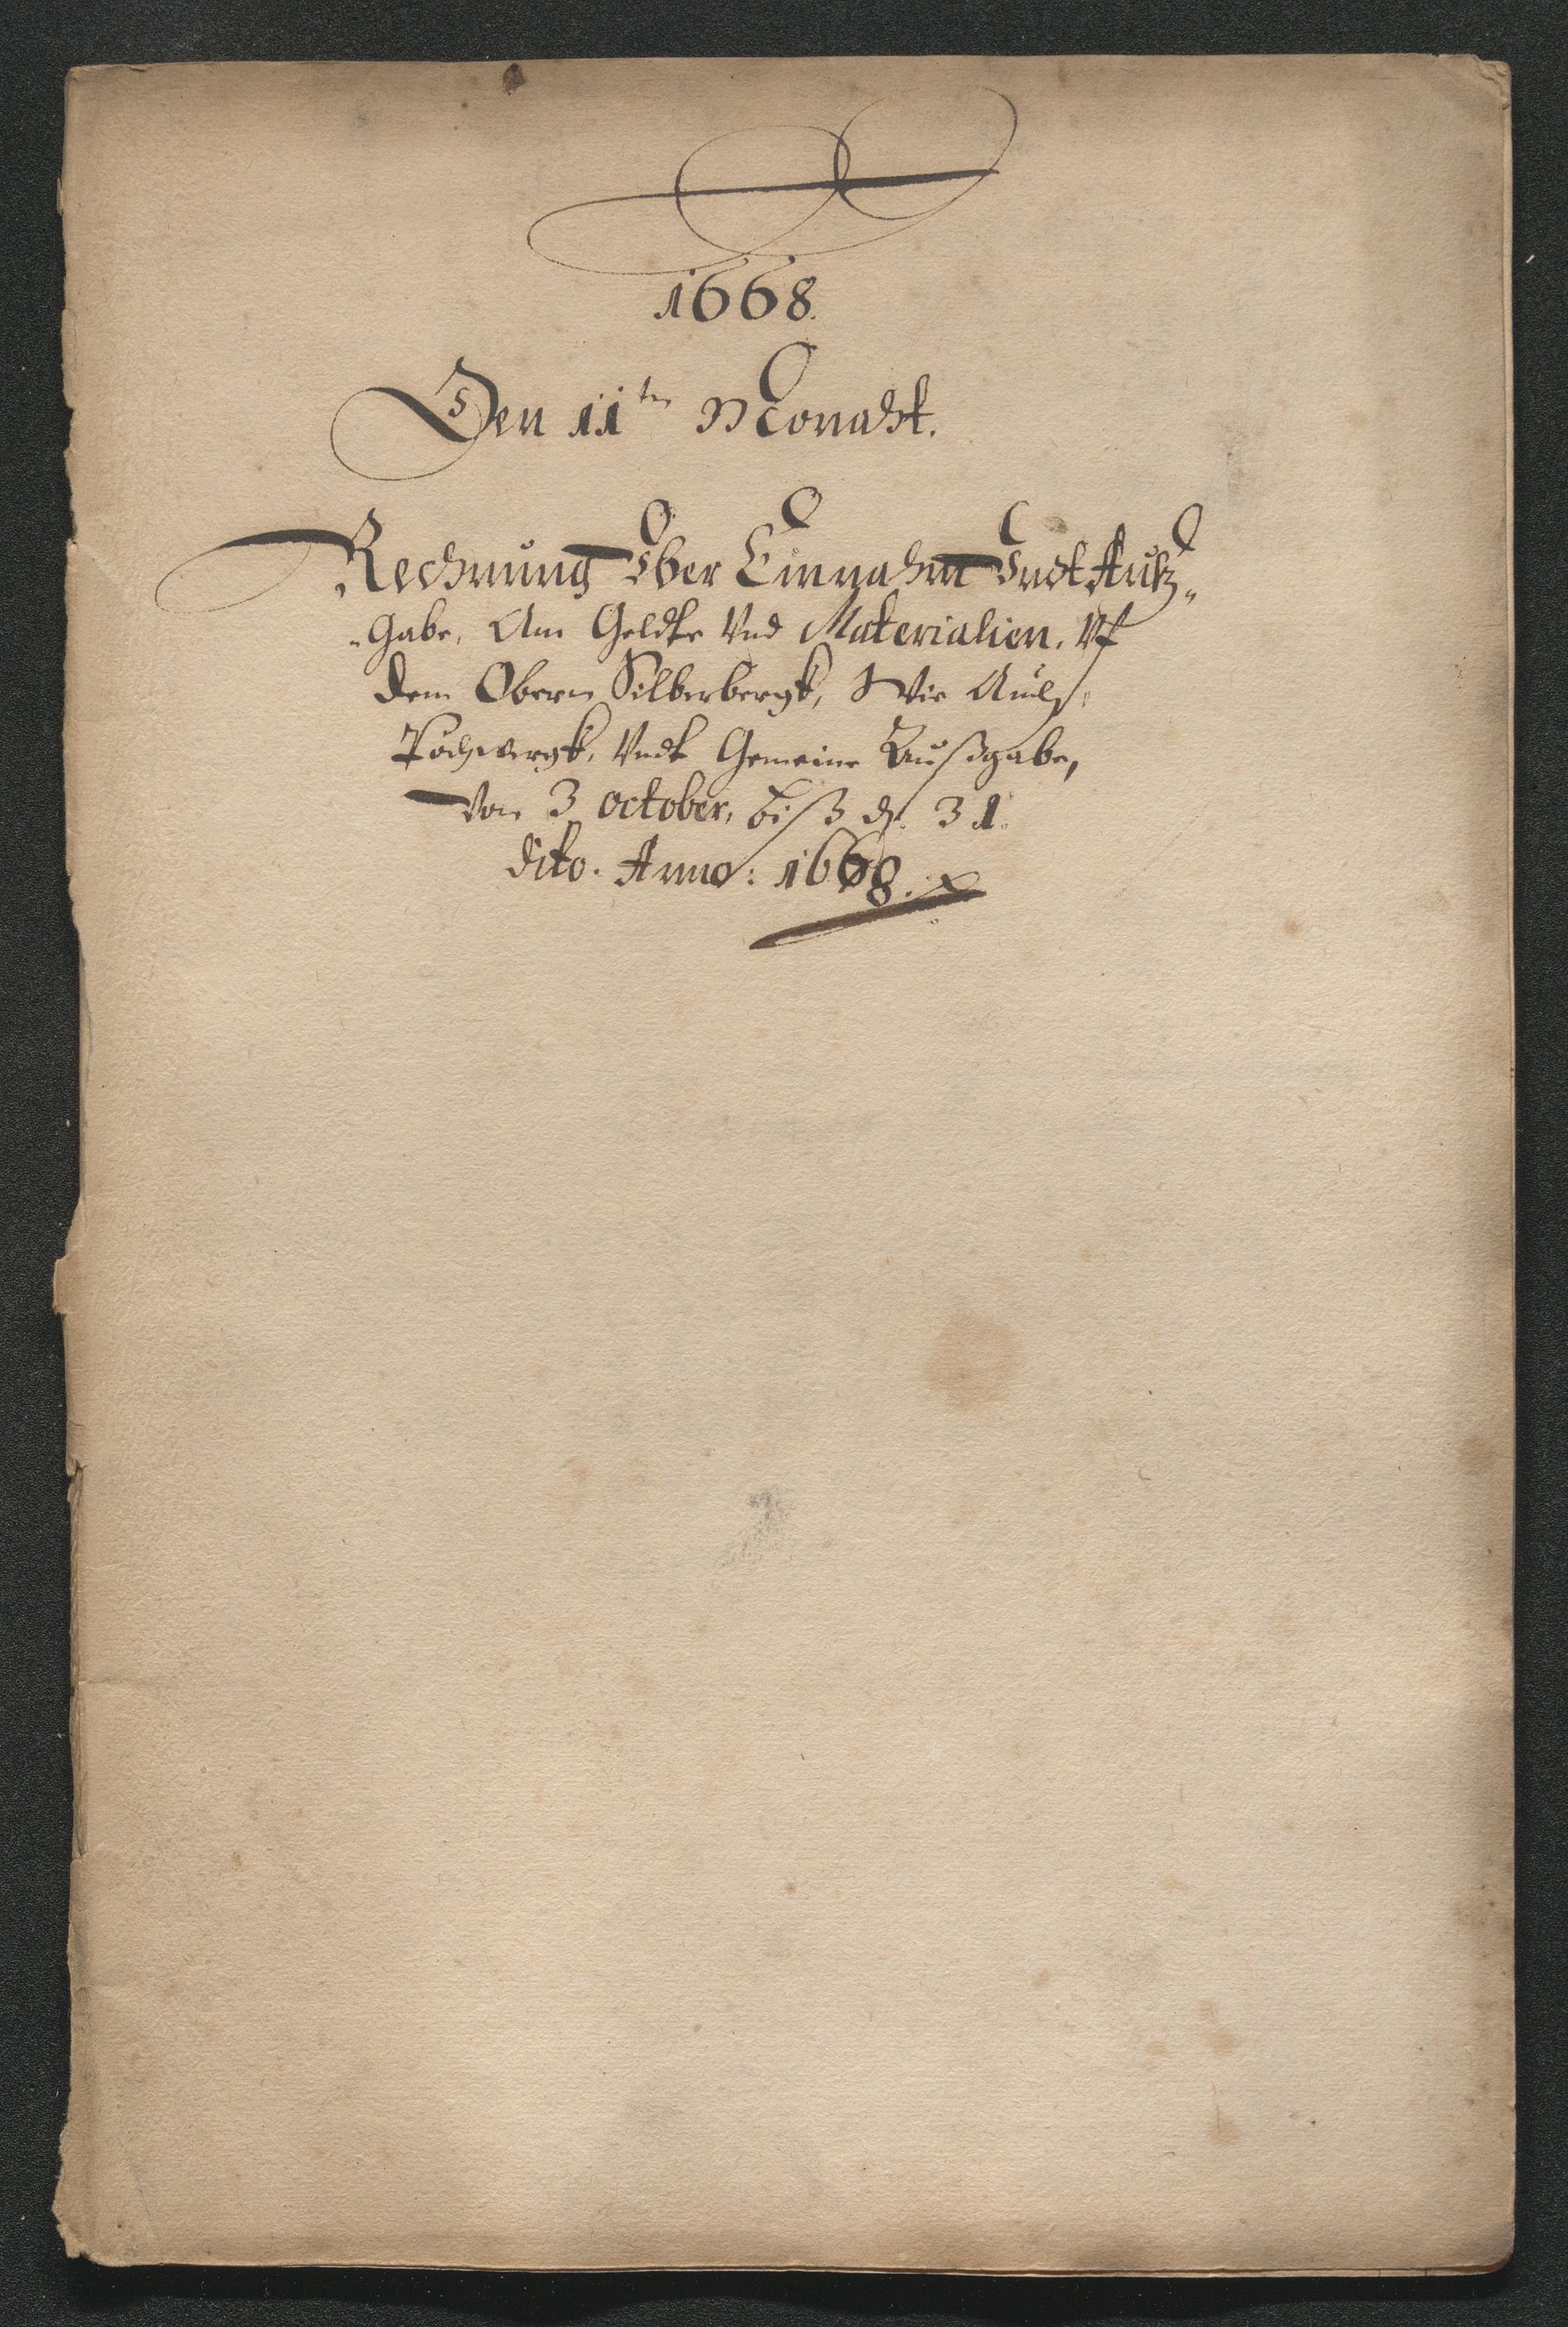 1668.
Den 11ten Monaht.
Rechnung Vber Einnahm Vndt Auß„
„Gabe, Am Geldte Vnd Materialien. Vf
dem Obern Silberbergk, Wie Auch
Pochwergk, Vndt Gemeine Außgabe,
Von 3 october, biß d. 31.
dito. Anno: 1668.